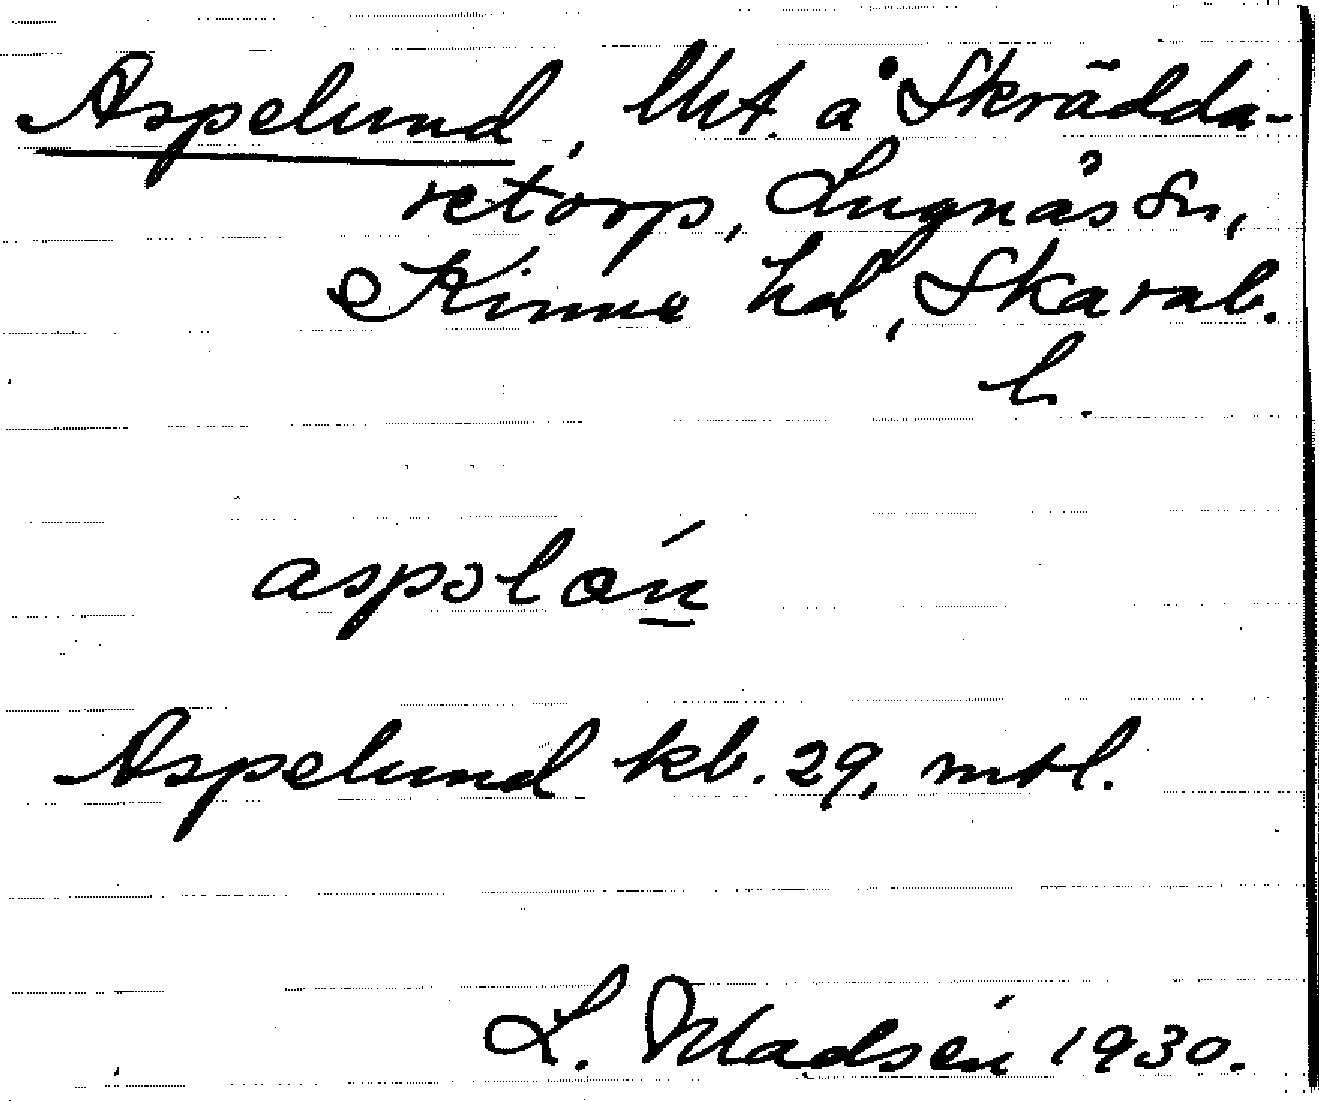 Aspelund, lht. å Skrädda-
retorp, Lugnås sn,
Kinne hd, Skarab.
l.
aspolǿn
Aspelund kb. 29, mtl.
L. Madsén 1930.